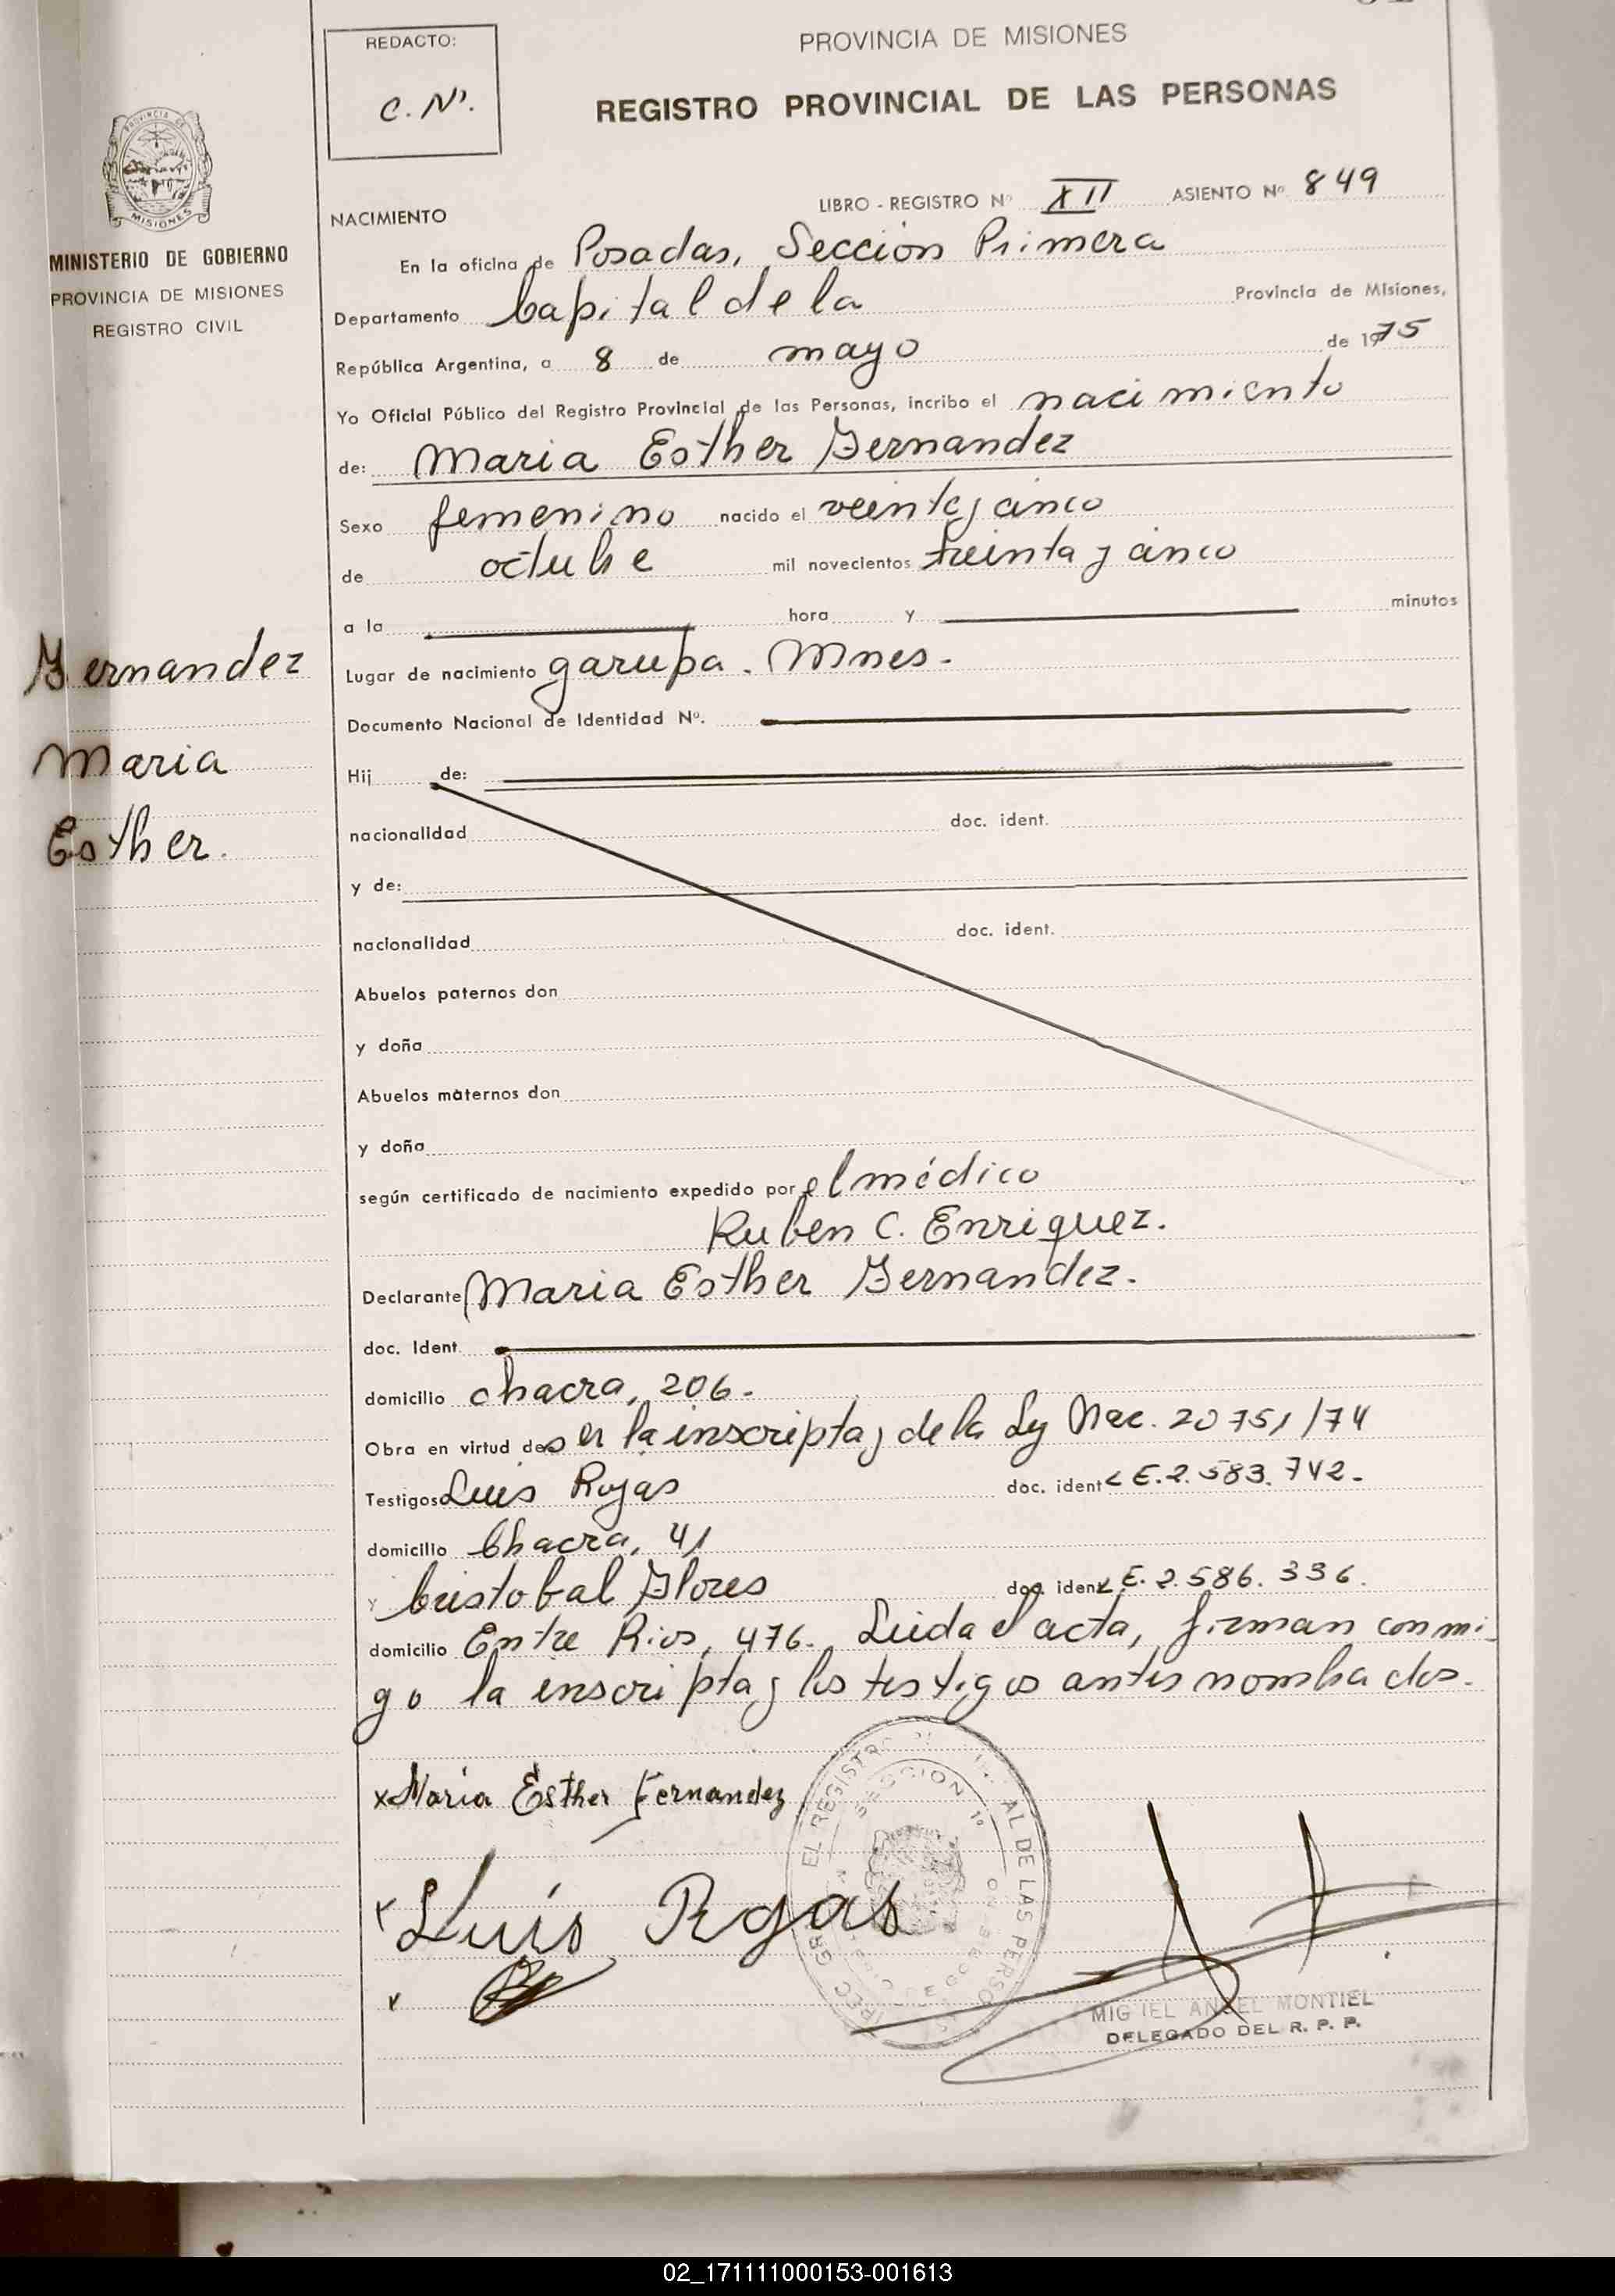 REDACTO:
C. N.
PROVINCIA DE MISIONES
REGISTRO PROVINCIAL DE LAS PERSONAS
PROVINCIA DE
MISIONES
MINISTERIO DE GOBIERNO
PROVINCIA DE MISIONES
REGISTRO CIVIL
NACIMIENTO
LIBRO - REGISTRO Nº XII ASIENTO Nº 849
En la oficina de Posadas, Sección Primera
Departamento Capital de la Provincia de Misiones,
República Argentina, a 8 de mayo de 1975
Yo Oficial Público del Registro Provincial de las Personas, incribo el nacimiento
de: Maria Esther Fernandez
Sexo femenino nacido el veinte y cinco
de octubre mil novecientos treinta y cinco
a la hora y minutos
Fernandez
Maria
Esther.
Lugar de nacimiento garupa. Mnes.
Documento Nacional de Identidad Nº.
Hij de:
nacionalidad doc. ident.
y de:
nacionalidad doc. ident.
Abuelos paternos don
y doña
Abuelos maternos don
y doña
según certificado de nacimiento expedido por el médico
Ruben C. Enriquez.
Declarante Maria Esther Fernandez.
doc. Ident
domicilio chacra, 206.
Obra en virtud de ser la inscripta y de la Ley Nac. 20751/74
Testigos Luis Rojas doc. ident L E. 2.583.742.
domicilio Chacra, 41
y Cristobal Flores doc. ident L E. 2.586.336.
domicilio Entre Rios, 476. Leida el acta, firman conmi
go la inscripta y los testigos antes nombrados.
x Maria Esther Fernandez
Luis Rojas
EL REGISTRO AL DE LAS PERSO
SECCION 1ª
MIGUEL ANGEL MONTIEL
DELEGADO DEL R. P. P.
02_171111000153-001613